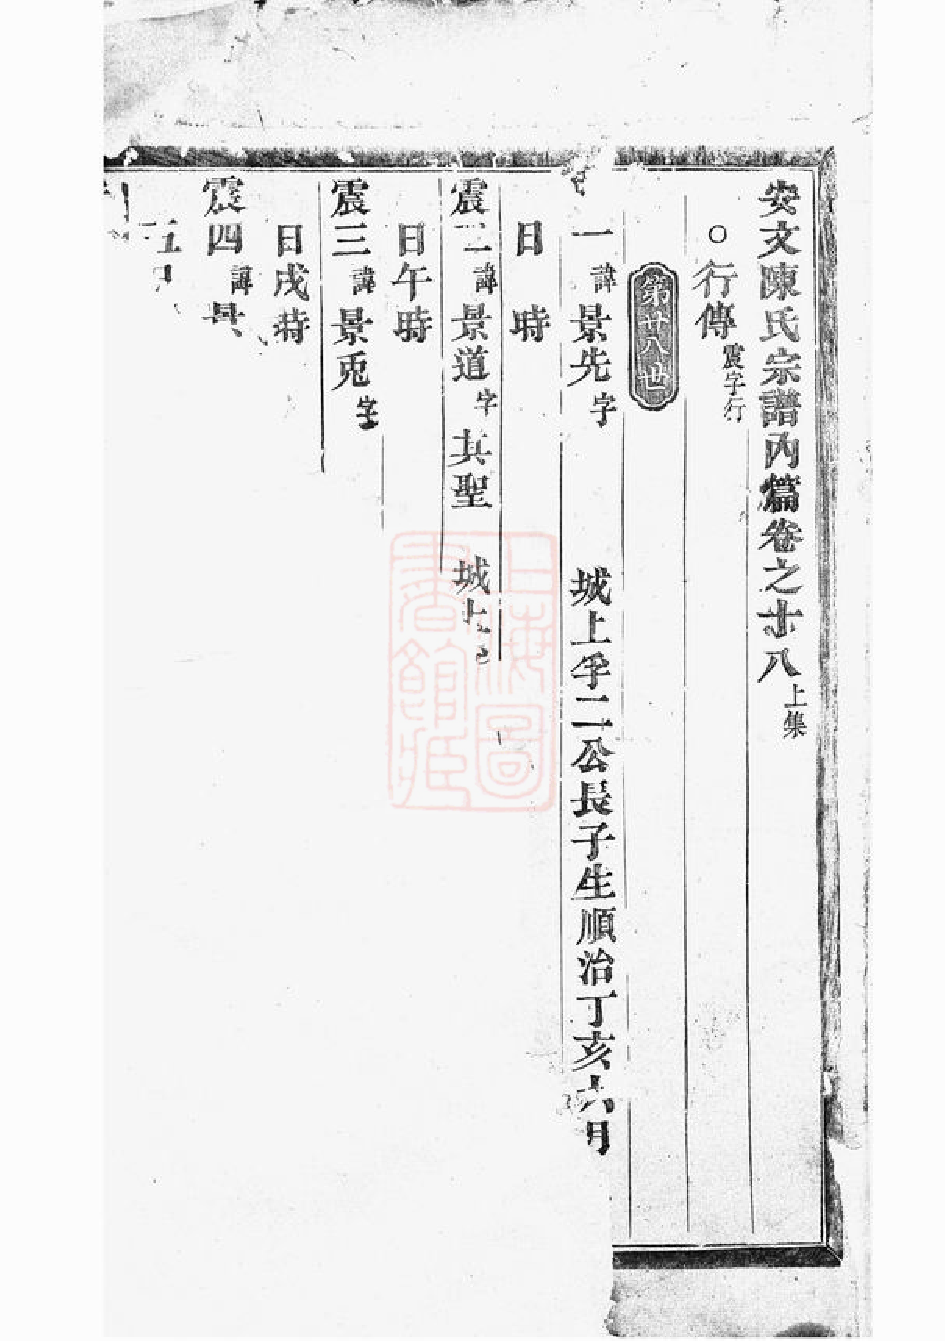 安文陳氏宗譜內篇卷之十八上集
○行傳震字行
第廿八世
一諱景先字 城上孚二公長子生順治丁亥六月
日 時
震二諱景道字其聖 城上
日午時
震三諱景兎字
日戌時
震四諱
五
上海圖書館藏